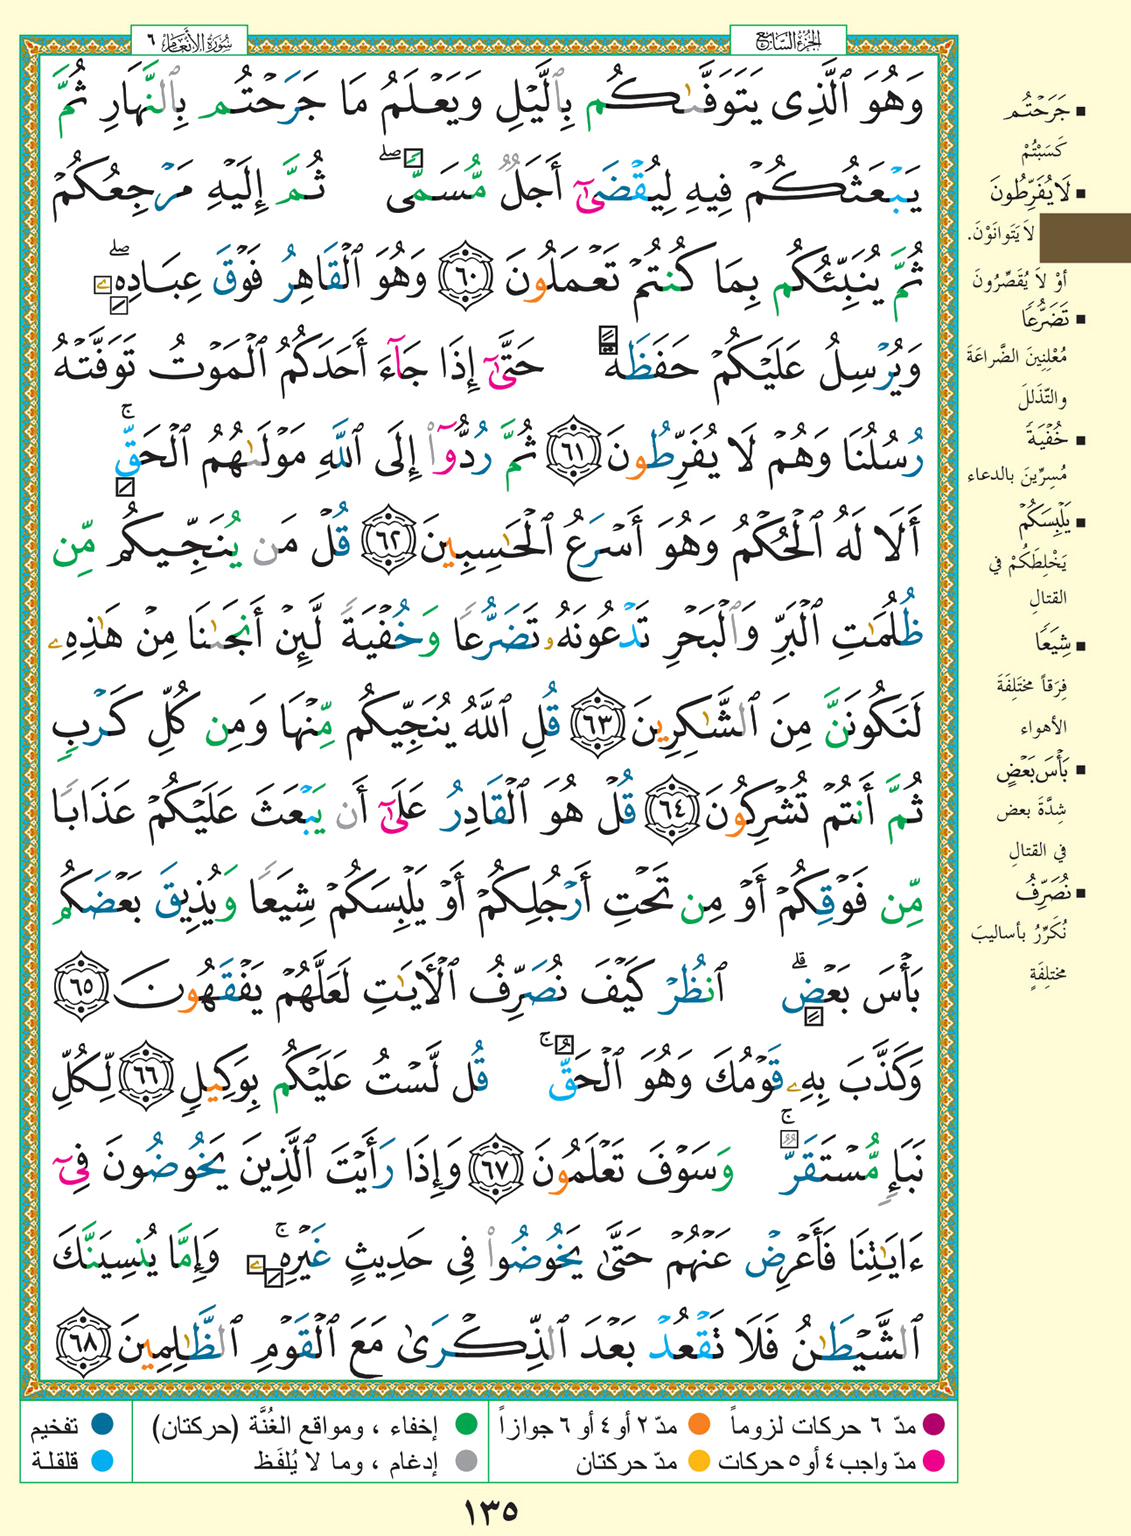 الجزء السابع
سورة الأنعام ٦
وَهُوَ ٱلَّذِى يَتَوَفَّىٰكُم بِٱلَّيْلِ وَيَعْلَمُ مَا جَرَحْتُم بِٱلنَّهَارِ ثُمَّ
يَبْعَثُكُمْ فِيهِ لِيُقْضَىٰٓ أَجَلٌ مُّسَمًّى ۖ ثُمَّ إِلَيْهِ مَرْجِعُكُمْ
ثُمَّ يُنَبِّئُكُم بِمَا كُنتُمْ تَعْمَلُونَ ٦٠ وَهُوَ ٱلْقَاهِرُ فَوْقَ عِبَادِهِۦ ۖ
وَيُرْسِلُ عَلَيْكُمْ حَفَظَةً حَتَّىٰٓ إِذَا جَآءَ أَحَدَكُمُ ٱلْمَوْتُ تَوَفَّتْهُ
رُسُلُنَا وَهُمْ لَا يُفَرِّطُونَ ٦١ ثُمَّ رُدُّوٓا۟ إِلَى ٱللَّهِ مَوْلَىٰهُمُ ٱلْحَقِّ ۚ
أَلَا لَهُ ٱلْحُكْمُ وَهُوَ أَسْرَعُ ٱلْحَٰسِبِينَ ٦٢ قُلْ مَن يُنَجِّيكُم مِّن
ظُلُمَٰتِ ٱلْبَرِّ وَٱلْبَحْرِ تَدْعُونَهُۥ تَضَرُّعًا وَخُفْيَةً لَّئِنْ أَنجَىٰنَا مِنْ هَٰذِهِۦ
لَنَكُونَنَّ مِنَ ٱلشَّٰكِرِينَ ٦٣ قُلِ ٱللَّهُ يُنَجِّيكُم مِّنْهَا وَمِن كُلِّ كَرْبٍ
ثُمَّ أَنتُمْ تُشْرِكُونَ ٦٤ قُلْ هُوَ ٱلْقَادِرُ عَلَىٰٓ أَن يَبْعَثَ عَلَيْكُمْ عَذَابًا
مِّن فَوْقِكُمْ أَوْ مِن تَحْتِ أَرْجُلِكُمْ أَوْ يَلْبِسَكُمْ شِيَعًا وَيُذِيقَ بَعْضَكُم
بَأْسَ بَعْضٍ ۗ ٱنظُرْ كَيْفَ نُصَرِّفُ ٱلْأَيَٰتِ لَعَلَّهُمْ يَفْقَهُونَ ٦٥
وَكَذَّبَ بِهِۦ قَوْمُكَ وَهُوَ ٱلْحَقُّ ۚ قُل لَّسْتُ عَلَيْكُم بِوَكِيلٍ ٦٦ لِّكُلِّ
نَبَإٍ مُّسْتَقَرٌّ ۚ وَسَوْفَ تَعْلَمُونَ ٦٧ وَإِذَا رَأَيْتَ ٱلَّذِينَ يَخُوضُونَ فِىٓ
ءَايَٰتِنَا فَأَعْرِضْ عَنْهُمْ حَتَّىٰ يَخُوضُوا۟ فِى حَدِيثٍ غَيْرِهِۦ ۚ وَإِمَّا يُنسِيَنَّكَ
ٱلشَّيْطَٰنُ فَلَا تَقْعُدْ بَعْدَ ٱلذِّكْرَىٰ مَعَ ٱلْقَوْمِ ٱلظَّٰلِمِينَ ٦٨
جَرَحْتُم
كَسَبْتُمْ
لَا يُفَرِّطُونَ
لاَ يَتَوانَوْنَ.
أوْ لاَ يُقَصِّرُونَ
تَضَرُّعًا
مُعْلِنِينَ الضَّراعَةَ
والتّذَللَ
خُفْيَةً
مُسِرِّينَ بالدعاء
يَلْبِسَكُمْ
يَخْلِطَكُمْ في
القتالِ
شِيَعًا
فِرَقاً مختَلِفَةَ
الأهواء
بَأْسَ بَعْضٍ
شِدَّةَ بعض
في القتالِ
نُصَرِّفُ
نُكَرِّرُ بأساليبَ
مختلِفَةٍ
مدّ ٦ حركات لزوماً مدّ ٢ أو ٤ أو ٦ جوازاً إخفاء ، ومواقع الغُنَّة (حركتان) تفخيم
مدّ واجب ٤ أو ٥ حركات مدّ حركتان إدغام ، وما لا يُلفَظ قلقلة
١٣٥